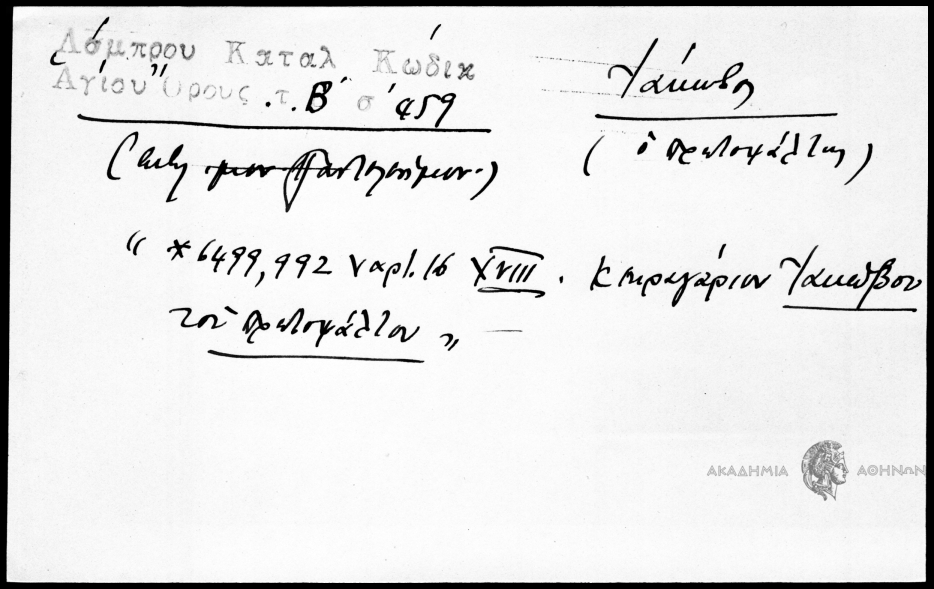 Λάμπρου Καταλ Κώδικ
Αγίου Όρους . τ. Β΄ σ 459
Ἰάκωβος
(ὁ πρωτοψάλτης)
Παντελεήμον.)
“ *6499,992 χαρτ. 16 XVIII . Κεκραγάριον Ἰακώβου
τοῦ πρωτοψάλτου „ —
ΑΚΑΔΗΜΙΑ ΑΘΗΝΩΝ